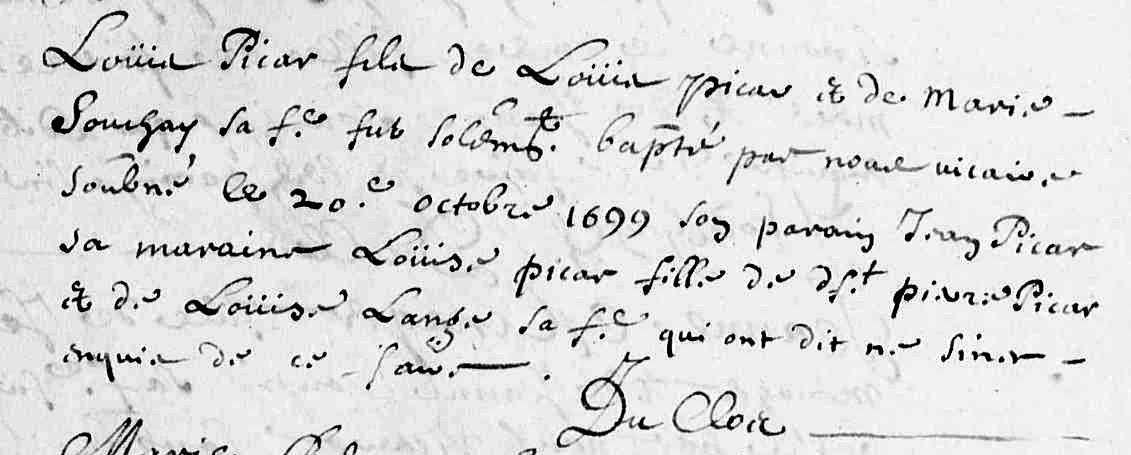 Loüis Picar fils de Loüis picar et de Marie -
Souchay sa f.e fut solēmt. bapt̄é par nous vicaire
soubn̄é le 20.e octobre 1699 son parain Jean Picar
sa maraine Loüise picar fille de dft pierre Picar
et de Loüise Lange sa f.e qui ont dit ne siner -
enquis de ce faire .
Du Clos